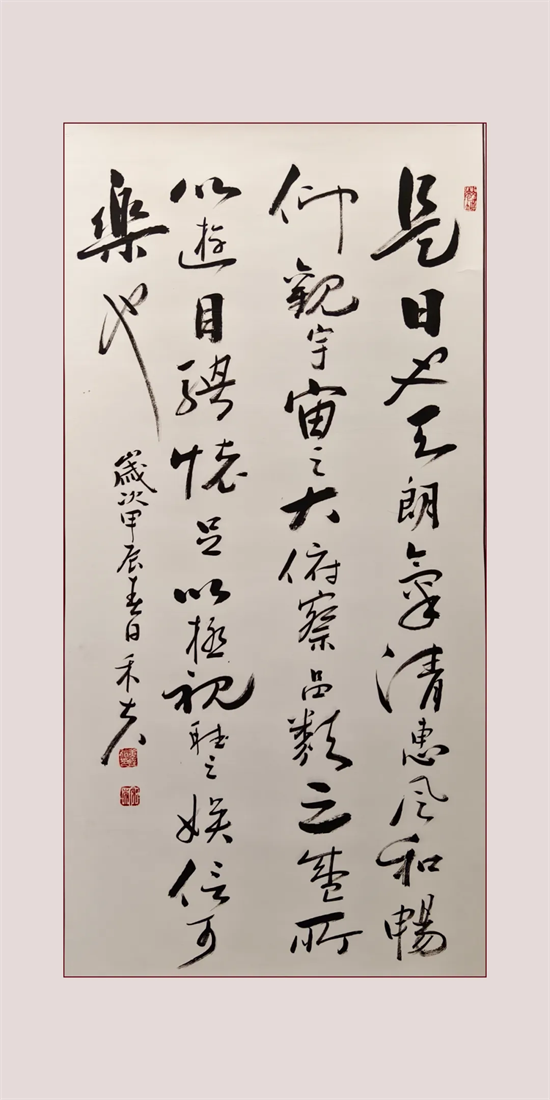 是日也天朗氣清惠風和暢
仰觀宇宙之大俯察品類之盛所
以遊目騁懷足以極視聽之娛信可
樂也
歲次甲辰春日禾夫